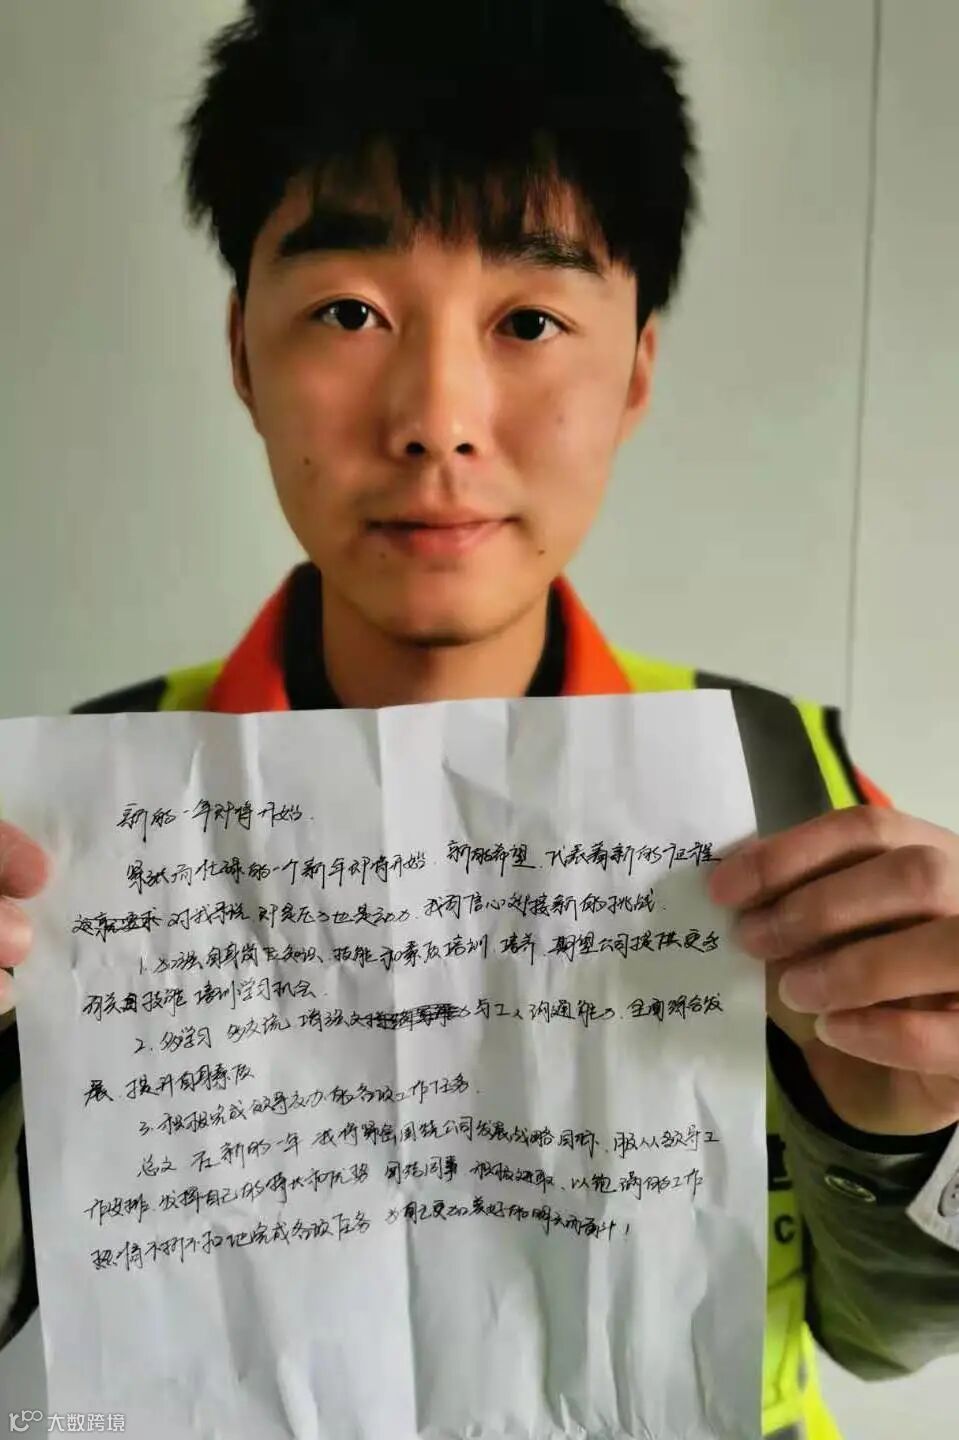 新的一年即将开始.
紧张而忙碌的一个新年即将开始. 新的希望. 代表着新的征程
对我来说 即是压力也是动力. 我有信心迎接新的挑战.
1. 加强自身岗位知识、技能和素质培训、培养. 期望公司提供更多
有关技能 培训学习机会.
2. 多学习 多交流, 增强 与工人沟通能力. 全面综合发
展. 提升自身素质
3. 积极完成领导交办的各项工作任务.
总之 在新的一年 我将紧密围绕公司发展战略目标、服从领导工
作安排. 发挥自己的特长和优势 团结同事 积极进取. 以饱满的工作
热情不折不扣地完成各项任务 为自己更加美好的明天而奋斗!
C
大数跨境